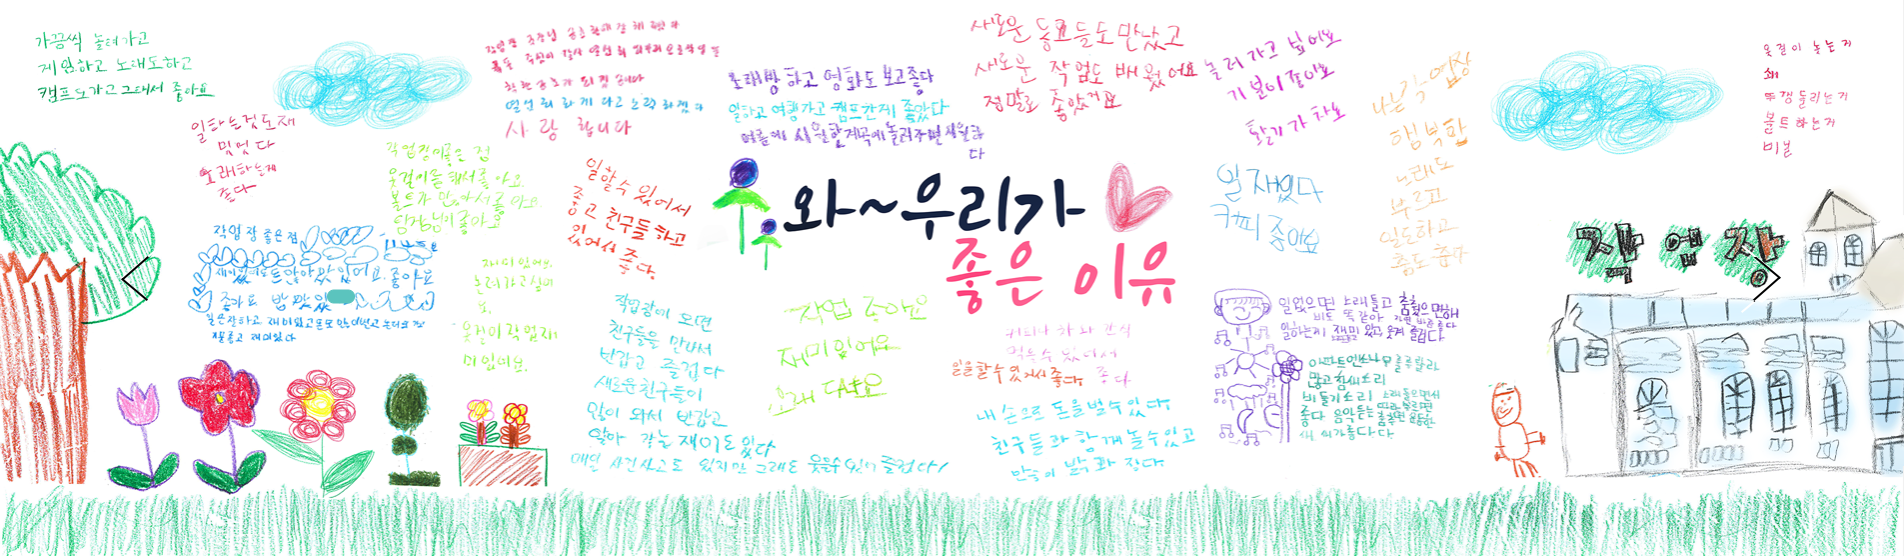 가끔씩 놀러가고
게임하고 노래도하고
캠프도가고 그래서 좋아요
일하는것도재
밌었다
노래하는게
좋다
작업장이좋은 점
옷걸이를 해서 좋아요
볼트가 많아서 좋아요
담당님이 좋아요
작업장 좋은점
좋아요
재미있어요
놀러가고싶어
요
옷걸이작업재
미있어요
열심히 하게 다고 노력하겠다
사랑 합니다
일할수 있어서
좋고 친구들하고
있어서 좋다
노래방 하고 영화도 보고좋다
일하고 여행가고 캠프간게 좋았다
여름에 시원한계곡에 놀러가면 시원하
다
새로운 동료들도 만났고
새로운 작업도 배웠어요
정말로 좋았어요
놀러가고 싶어요
기분이 좋아요
활기가 차요
나는 작업장
행복합
노래도
부르고
일도하고
춤도 춥다
옷걸이 놓는거
쇄
뚜껑돌리는거
볼트하는거
비닐
와~우리가
좋은 이유
일 재밌다
커피 좋아요
작업장
작업장이 오면
친구들을 만나서
반갑고 즐겁다
새로운친구들이
많이 와서 반갑고
알아 가는 재미도 있다
매일 사건사고도 있지만 그래도 웃을수있어 즐겁다!
작업 좋아요
재미있어요
노래
커피나 차와 간식
먹을수 있어서
좋다
일을할수있어서좋다
내 손으로 돈을벌수있다
친구들과 함께 놀수있고
일없으면 노래틀고 춤췄으면해
일하는게 재미있고 웃겨 즐겁다
많고 참새소리
비둘기소리 노래들으면서